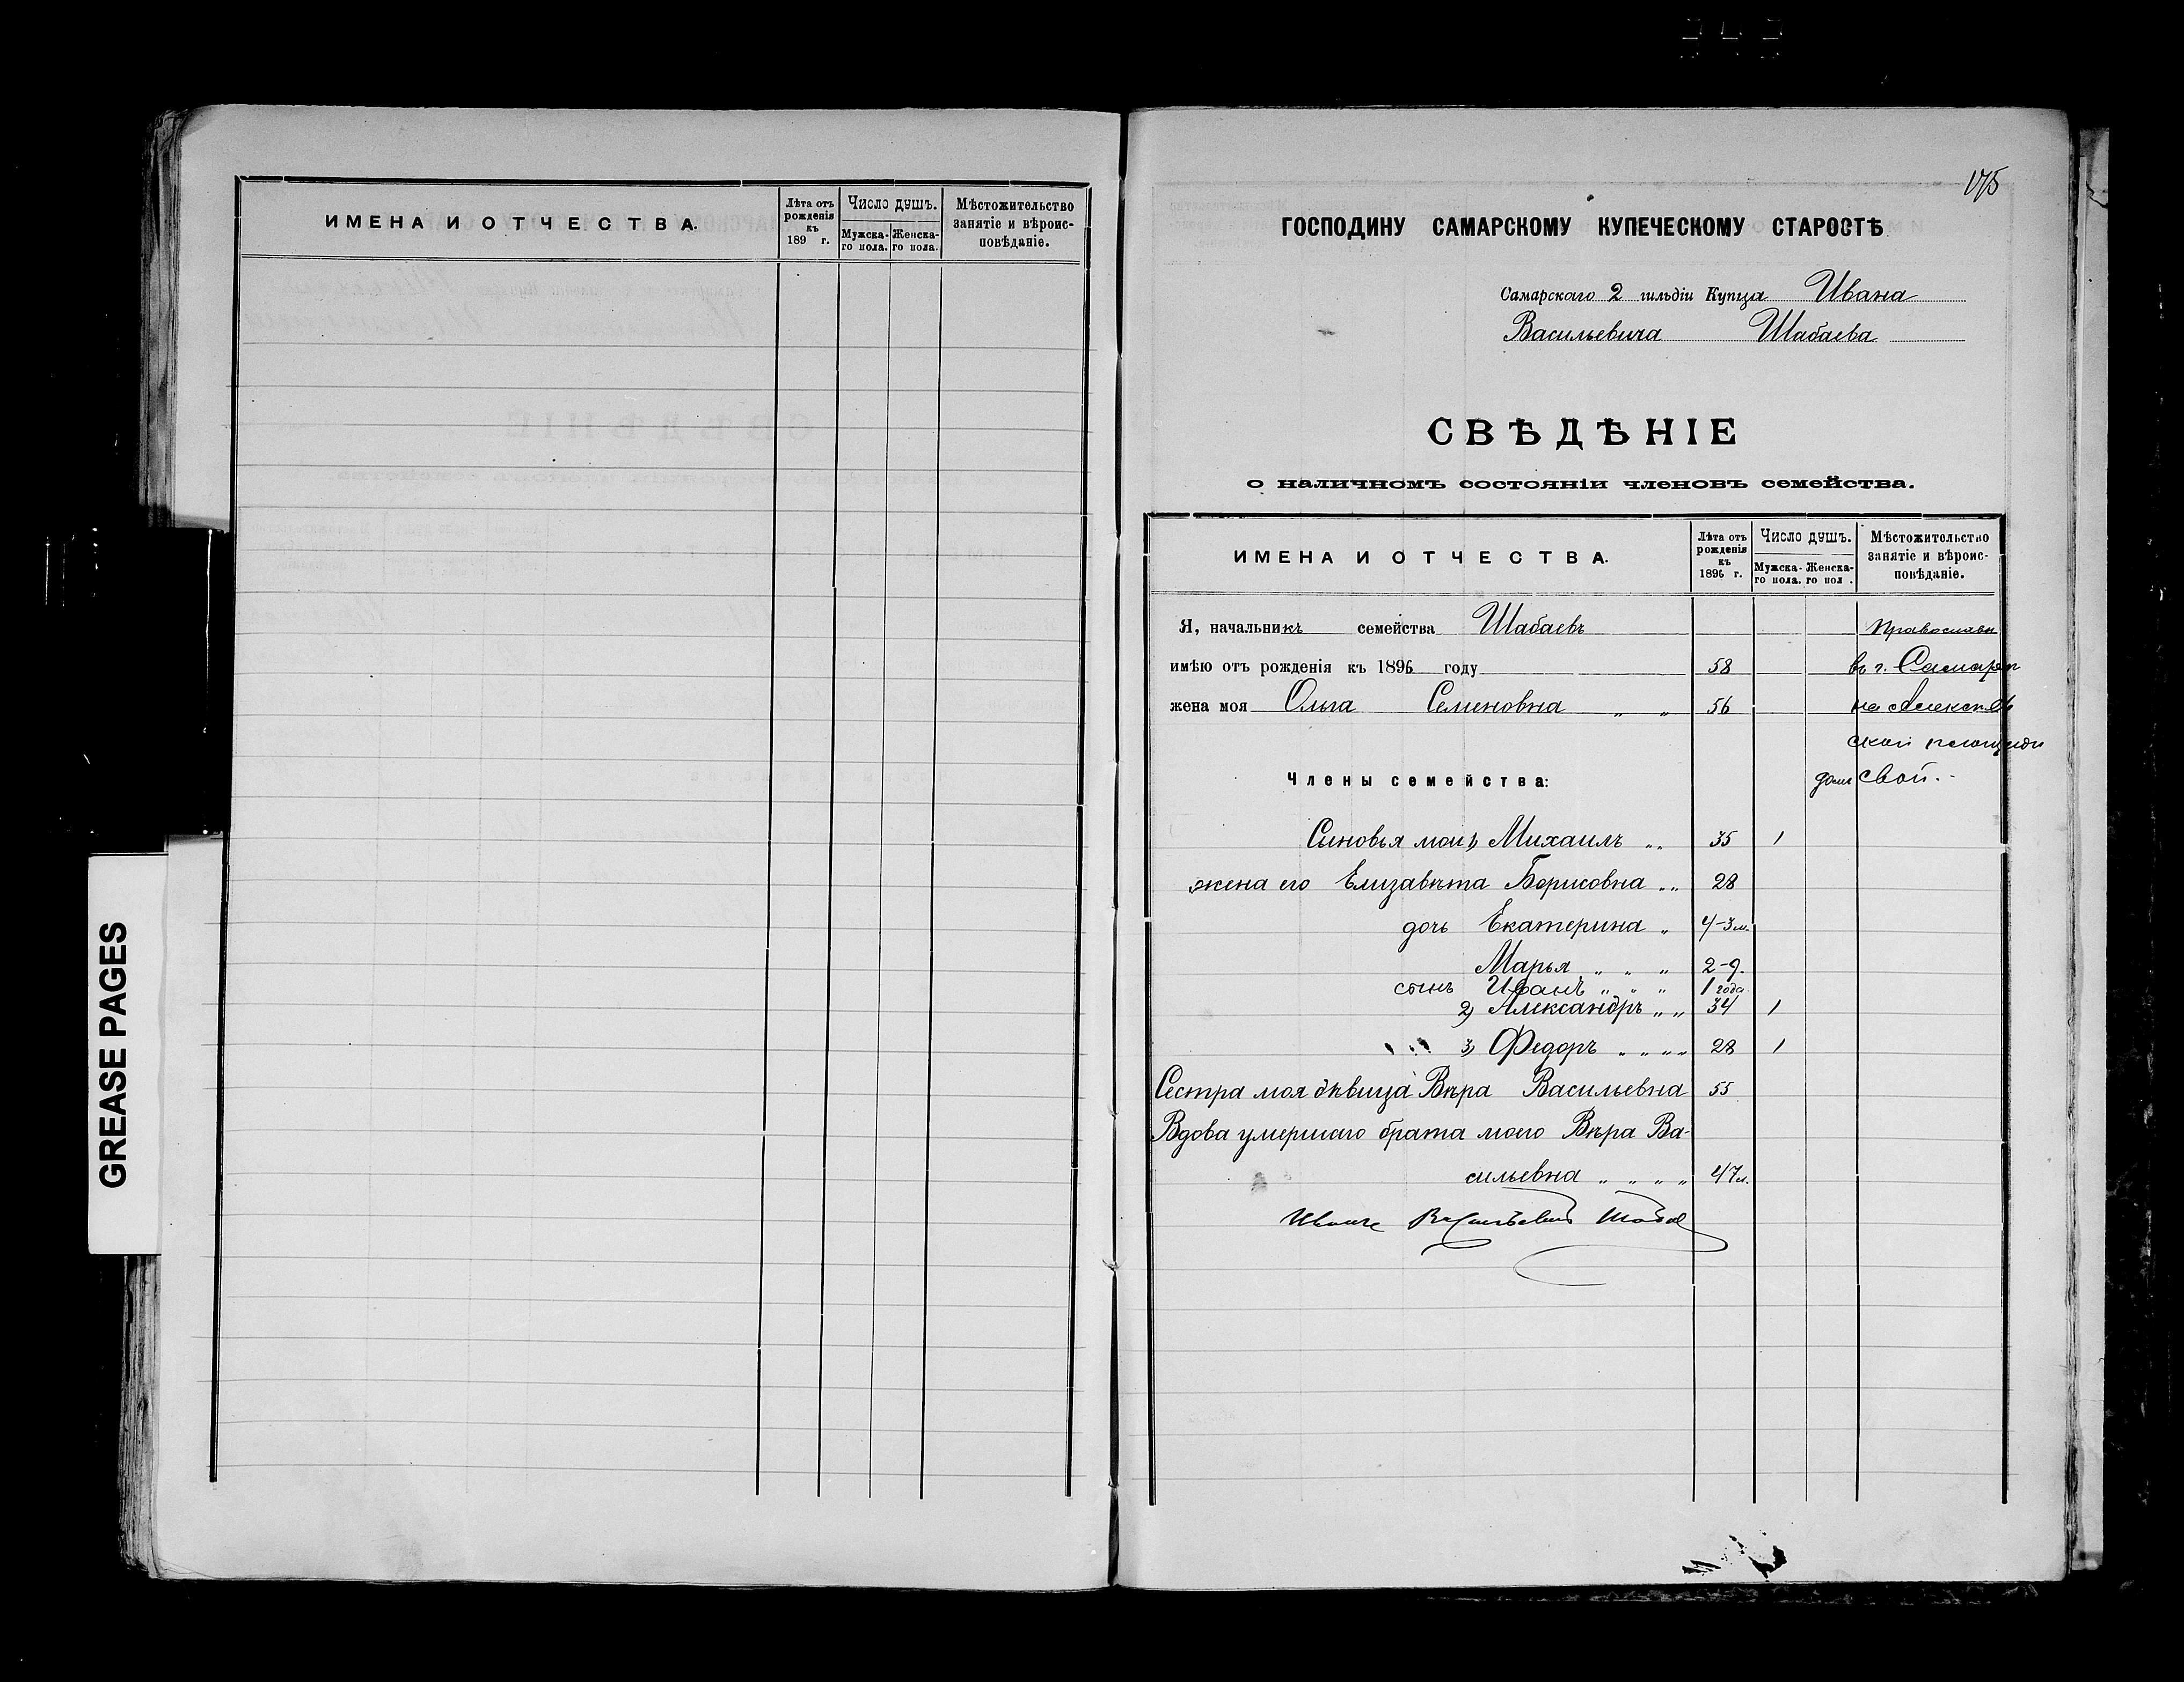 ИМЕНА И ОТЧЕСТВА.
Лѣта отъ рожденія къ 189 г.
Число душъ.
Мужска-го пола.
Женска-го пола.
Мѣстожительство занятіе и вѣроис-повѣданіе.
GREASE PAGES
175
ГОСПОДИНУ САМАРСКОМУ КУПЕЧЕСКОМУ СТАРОСТѢ
Самарскаго 2 гильдіи Купца Ивана
Васильевича Шабаева
СВѢДѢНІЕ
о наличномъ состояніи членовъ семейства.
ИМЕНА И ОТЧЕСТВА.
Лѣта отъ рожденія къ 1896 г.
Число душъ.
Мужска-го пола.
Женска-го пол .
Мѣстожительство занятіе и вѣроис-повѣданіе.
Я, начальникъ семейства Шабаевъ Православн
имѣю отъ рожденія къ 1896 году 58 въ г. Самарѣ
жена моя Ольга Семеновна „ „ 56 на
ской площади
Члены семейства: домъ свой.
Сыновья мои 1) Михаилъ „ 35 1
жена его Елизавѣта Борисовна „ 28
дочь Екатерина „ 4-3 м.
Марья „ „ „ 2-9.
сынъ Иванъ „ „ „ 1 года
2) Александръ „ „ 34 1
3) Федоръ „ „ „ „ 28 1
Сестра моя дѣвица Вѣра Васильевна 55
Вдова умершаго брата моего Вѣра Ва-
сильевна „ „ „ „ 47 л.
Иванъ Васильевичъ